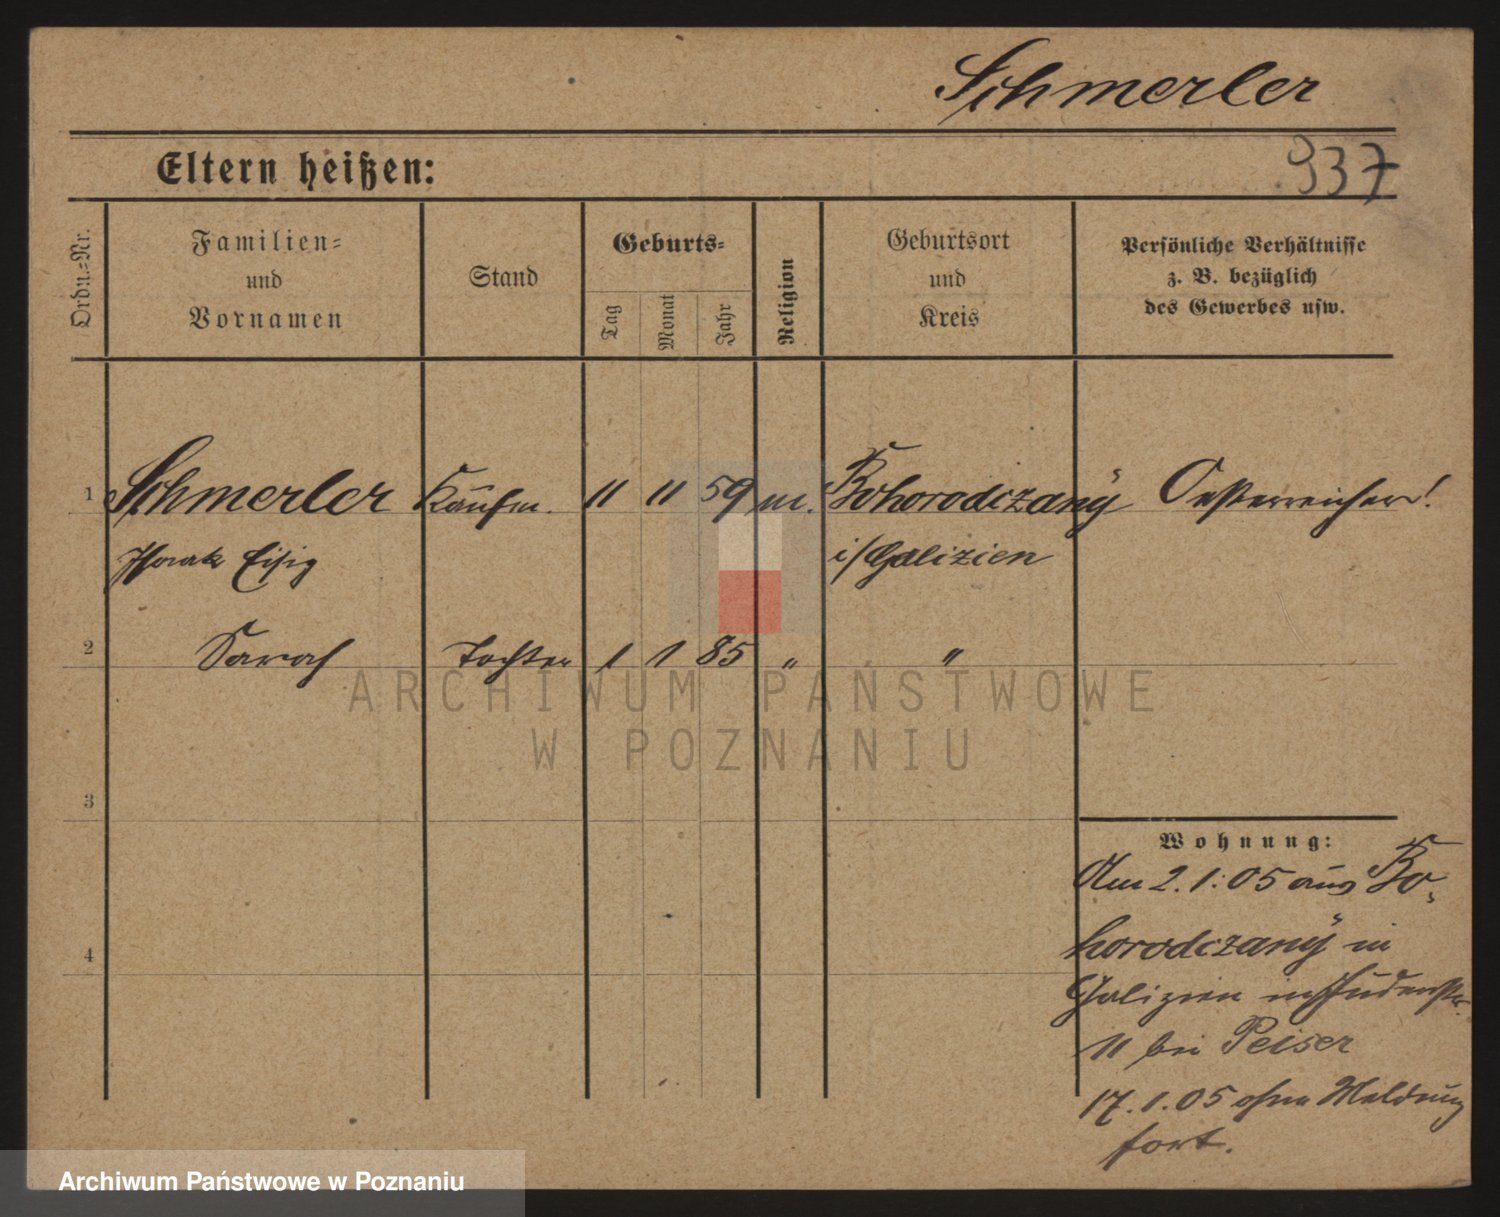 Schmerler
Eltern heißen:
937
Ordn.-Nr.
Familien-
und
Vornamen
Stand
Geburts-
Tag
Monat
Jahr
Religion
Geburtsort
und
Kreis
Persönliche Verhältnisse
z. B. bezüglich
des Gewerbes usw.
1 Schmerler Kaufm. 11 11 59 m. Bohorodczany Oesterreicher!
Eisig i/Galizien
2 Sarah Tochter 1 1 85 " "
3
Wohnung:
Am 2.1.05 aus Bo-
horodczany in
4
Galizien in Judenstr.
11 bei Peiser
17.1.05 ohne Meldung
fort.
ARCHIWUM PAŃSTWOWE
W POZNANIU
Archiwum Państwowe w Poznaniu